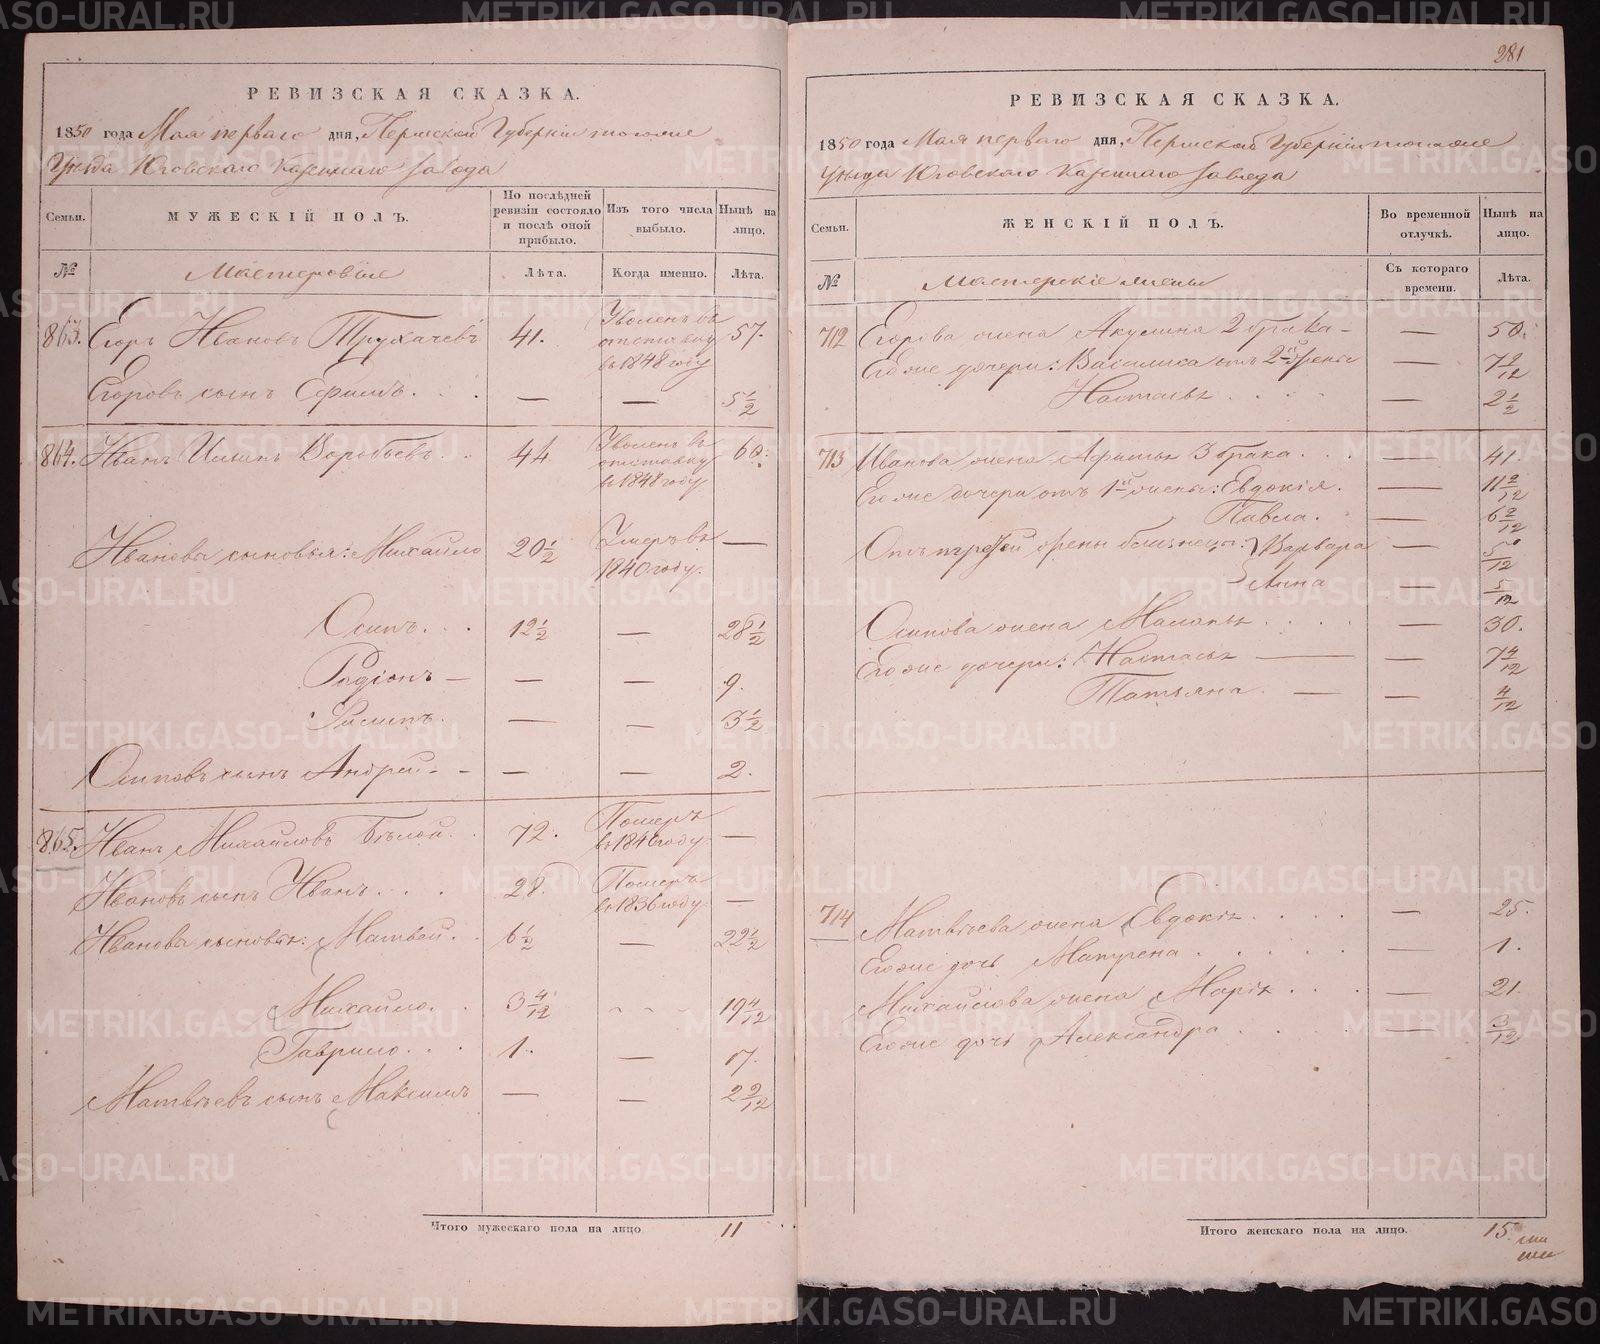 РЕВИЗСКАЯ СКАЗКА.
1850 года Мая перваго дня, Пермской Губерніи тогоже
Уѣзда Юговскаго Казеннаго завода
Семьи. МУЖЕСКІЙ ПОЛЪ. По послѣдней ревизіи состояло и послѣ оной прибыло. Изъ того числа выбыло. Нынѣ на лицо.
№ Мастеровые Лѣта. Когда именно. Лѣта.
863. Егоръ Ивановъ Трухачевъ 41. Уволенъ въ отставку въ 1848 году 57.
Егоровъ сынъ Ефимъ. — — 5 1/2
864. Иванъ Ильинъ Воробьевъ 44 Уволенъ въ отставку въ 1848 году 60.
Ивановы сыновья: Михайло 20 1/2 Умеръ въ 1840 году. —
Осипъ. 12 1/2 — 28 1/2
Родіонъ — — — 9.
Филипъ. — — 3 1/2
Осиповъ сынъ Андрей — — 2.
865. Иванъ Михайловъ Бѣлой 72. Померъ въ 1846 году. —
Ивановъ сынъ Иванъ 28. Померъ въ 1836 году. —
Ивановы сыновья: Матвей 6 1/2 — 22 1/2
Михайло. 3 4/12 - - 19 4/12
Гаврило. 1. — 17.
Матвѣевъ сынъ Максимъ — — 2 2/12
Итого мужескаго пола на лицо 11
281
РЕВИЗСКАЯ СКАЗКА.
1850 года Мая перваго дня, Пермской Губерніи тогоже
Уѣзда Юговскаго Казеннаго завода
Семьи. ЖЕНСКІЙ ПОЛЪ. Во временной отлучкѣ. Нынѣ на лицо.
№ Мастерскіе жены Съ котораго времени. Лѣта.
712 Егорова жена Акулина 2 брака — — 50.
Егоже дочери: Василиса отъ 2й жены — 7 2/12
Настасья — 2 1/2
713 Иванова жена Афимья 3 брака — 41.
Егоже дочери отъ 1й жены: Евдокія. — 11 2/12
Павла. — 6 2/12
Отъ третьей жены близнецы: Варвара — 5/12
Анна — 5/12
Осипова жена Маланья — 30.
Егоже дочери: Настасья — — 7 4/12
Татьяна. — — 4/12
714 Матвѣева жена Евдокія — 25.
Егоже дочь Матрена — 1.
Михайлова жена Марія — 21.
Егоже дочь Александра — 3/12
Итого женскаго пола на лицо. 15.
METRIKI.GASO-URAL.RU